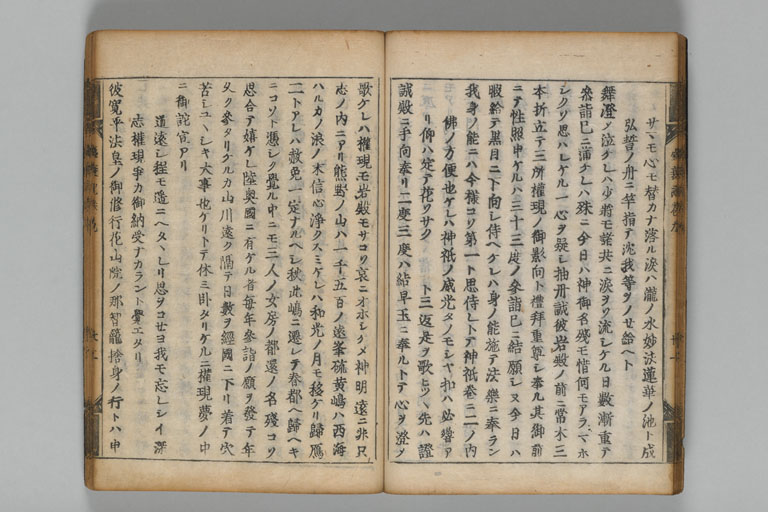 サヽモ心モ替カナ落ル涙ハ瀧ノ水妙法蓮華ノ池ト成
弘誓ノ舟ニ竿指テ沈我等ヲノせ給ヘト
舞澄ノ泣ケレハ少將モ諸共ニ涙ヲソ流シケル日數漸重テ
參詣已ニ滿ケレハ殊ニ今日ハ神御名殘モ惜何モアラマホ
シクソ思ハレケル一心ヲ凝シ抽丹誠彼岩殿ノ前ニ常木三
本折立テ三所權現ノ御影向ト禮拜重尊シ奉ル其御前
ニテ性照申ケルハ三十三度ノ參詣已ニ結願シヌ今日ハ
暇給テ黒目ニ下向シ侍ヘケレハ身ノ能施テ法樂ニ奉ラン
我身ノ能ニハ今樣コソ第一ト思侍レトテ神祇卷ニ二ノ内
佛ノ方便也ケレハ神祇ノ威光タノモシヤ扣ハ必響ア
リ仰ハ定テ花ソサク ト三返是ヲ歌ヒツヽ先ハ證
誠殿ニ手向奉リ二度三度ハ結早玉ニ奉ルトテ心ヲ澄ソ
歌ケレハ權現モ岩殿モサコソ哀ニオホシケメ神明遠ニ非只
志ノ内ニアリ熊野ノ山ハ一千五百ノ遠峯硫黄嶋ハ西海
ハルカノ浪ノ末信心淨クスミケレハ和光ノ月モ移ケリ歸鴈
二トアレハ赦免一定ナルヘシ秋此嶋ニ遷レテ春都ヘ歸ヘキ
ニコソト憑シク覺ル中ニモ二人ノ女房ノ都還ノ名殘コソ
思合テ嬉ケレ陸奥國ニ有ケル者每年參詣ノ願ヲ發テ年
久ク參タリケルカ山川遠ク隔テ日數ヲ經國ニ下リ着テ穴
苦シユヽシキ大事也ケリトテ休臥タリケルニ權現夢ノ中
ニ御託宣アリ
道遠シ程モ遙ニヘタヽレリ思ヲコせヨ我モ忘レシイ深
志權現爭カ御納受ナカラント覺エタリ
彼寛平法皇ノ御修行花山院ノ那智籠捨身ノ行トハ申